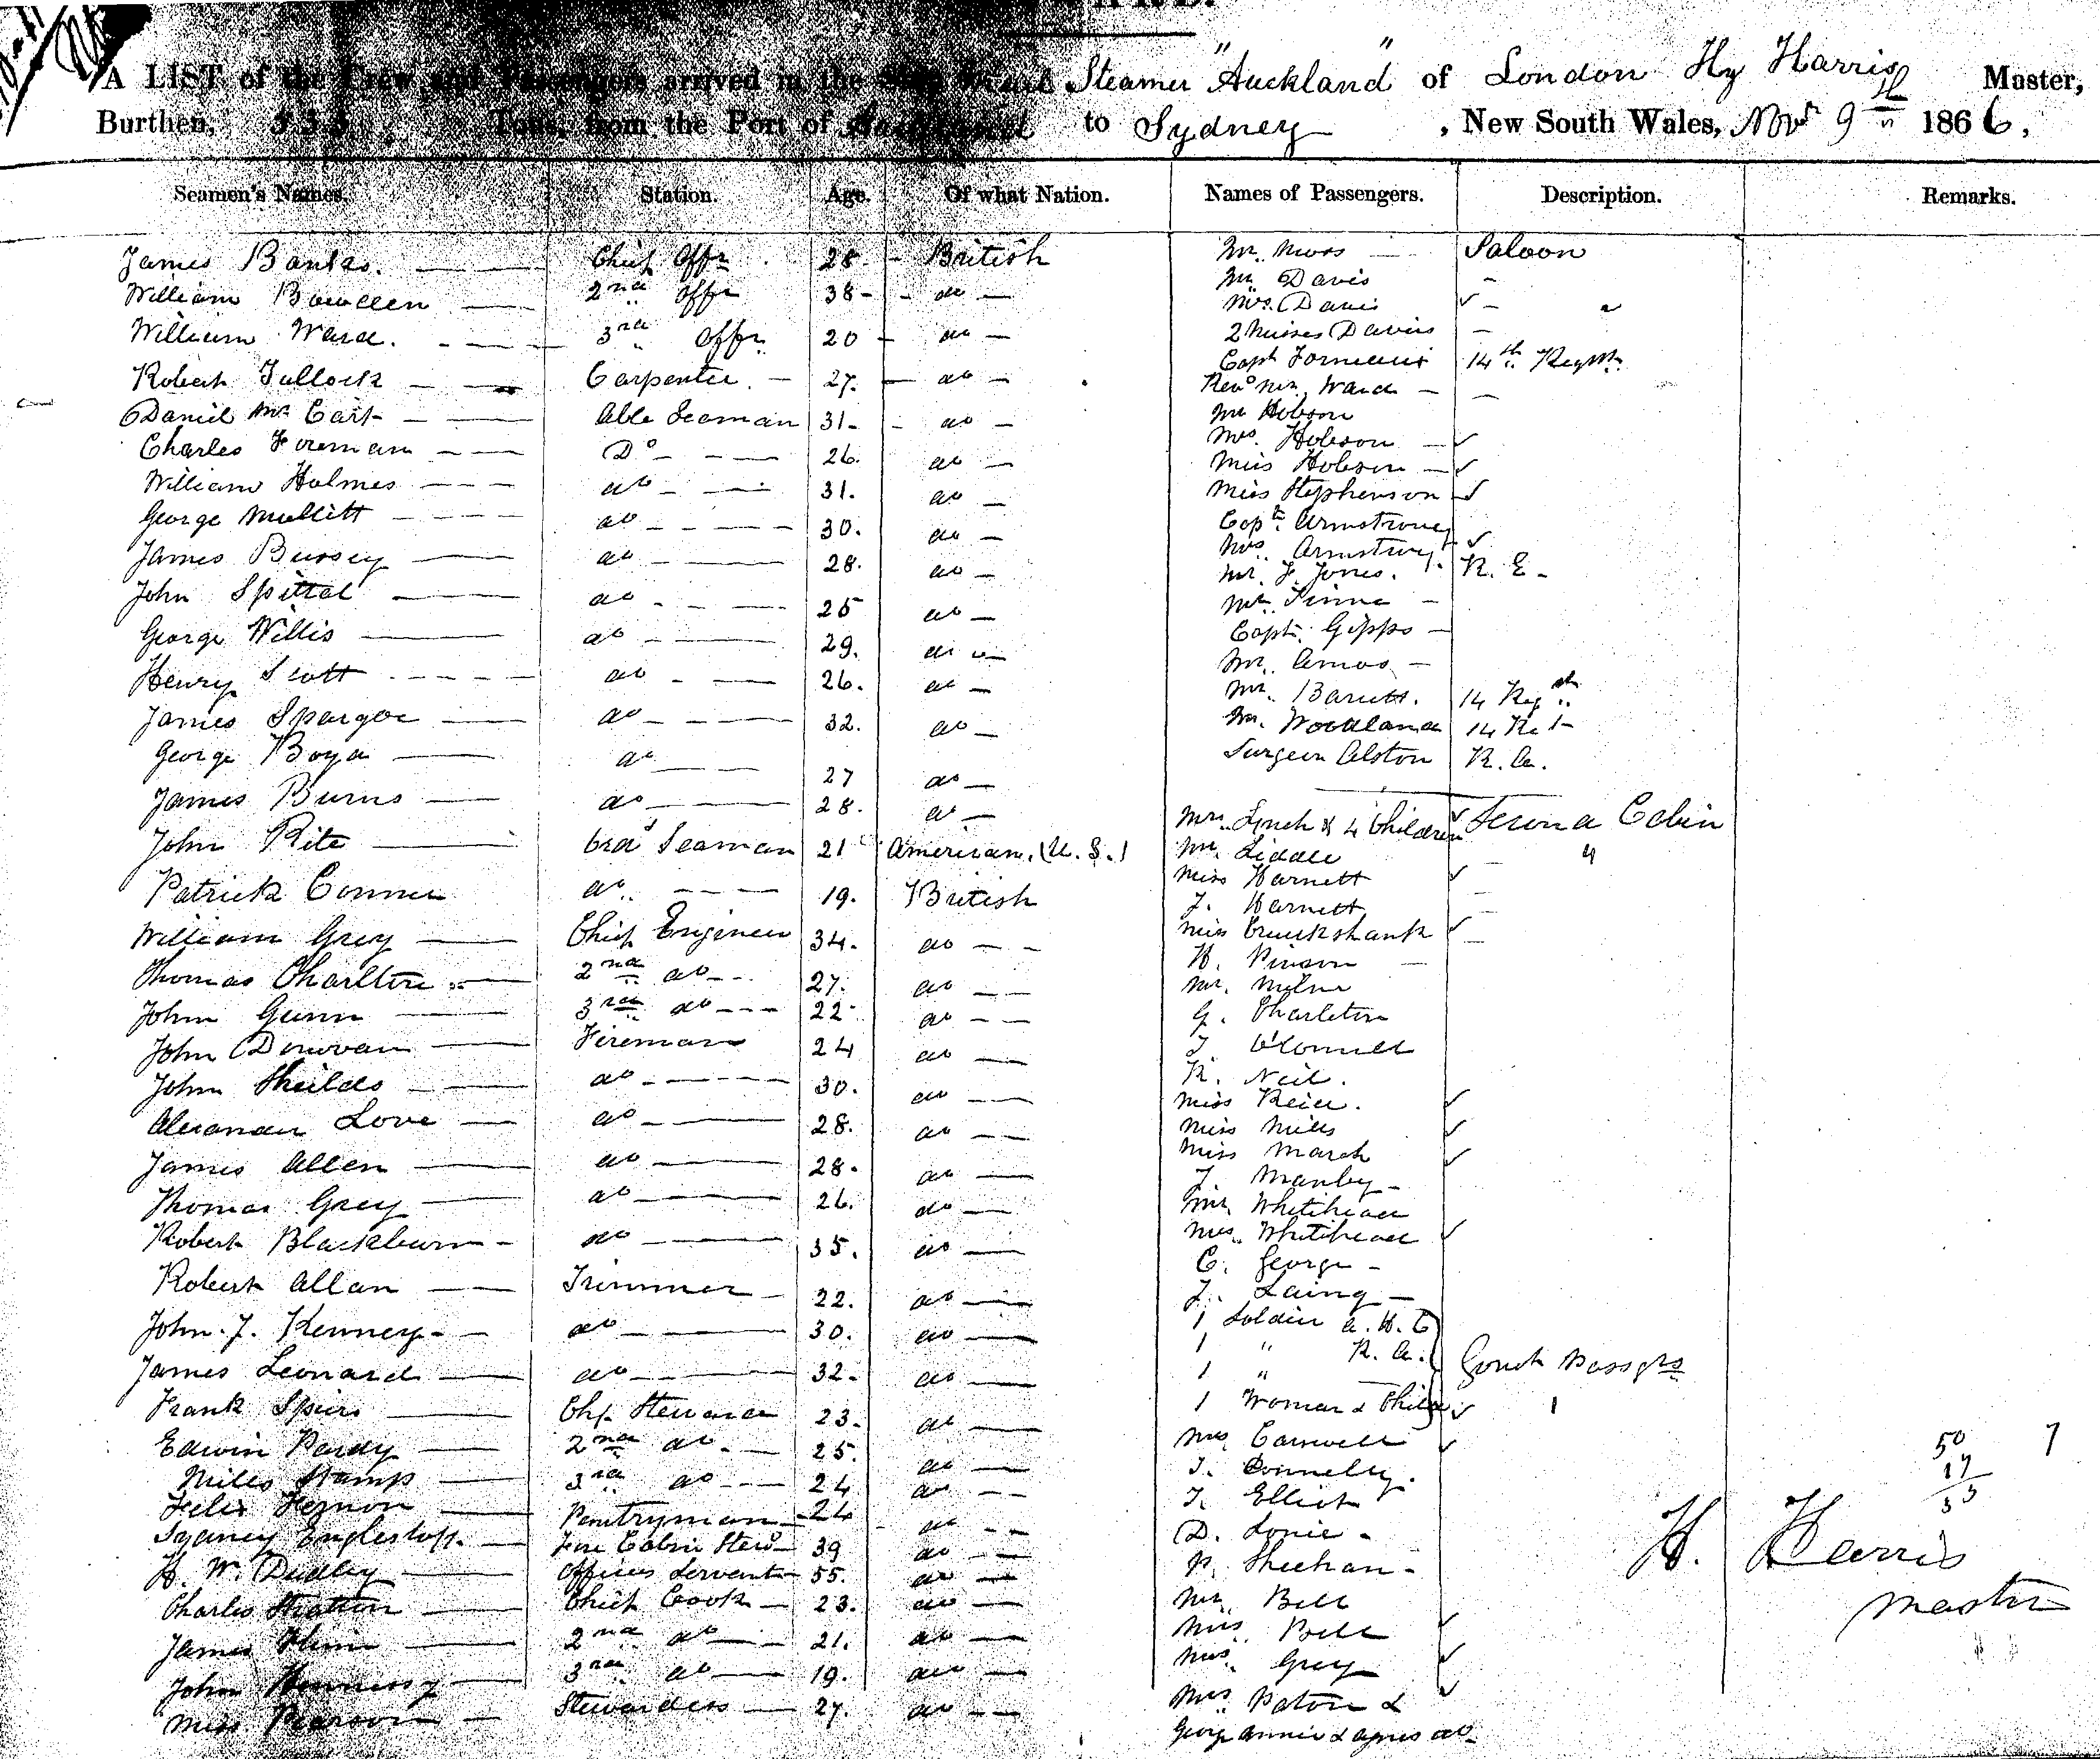 A LIST of the Crew and Passengers arrived in the Steamer "Auckland" of London Hy Harris Master,
Burthen, Tons, from the Port of to Sydney, New South Wales, Novr 9th 1866,
Seamen's Names. Station. Age. Of what Nation. Names of Passengers. Description. Remarks.
James Banks. Chief Offr 28 British
William Bowden 2nd Offr 38 do
William Ward. 3rd Offr 20 do
Robert Tullock Carpenter. 27. do
Daniel Mc Cart Able Seaman 31 do
Charles Foreman Do 26. do
William Holmes do 31. do
George Mullitt do 30. do
James Bussey do 28. do
John Spittal do 25 do
George Willis do 29. do
Henry Scott do 26. do
James Spargoe do 32. do
George Boyd do 27 do
James Burns do 28. do
John Rite Ord Seaman 21 American. (U.S.)
Patrick Conner do 19. British
William Grey Chief Engineer 34. do
Thomas Charlton 2nd do 27. do
John Gunn 3rd do 22 do
John Donovan Fireman 24 do
John Sheilds do 30. do
Alexander Love do 28. do
James Allen do 28. do
Thomas Grey do 26. do
Robert Blackburn do 35. do
Robert Allan Trimmer 22. do
John. J. Kenney do 30. do
James Leonard do 32. do
Frank Spiers Chf Steward 23. do
Edwin Pardy 2nd do 25. do
Miles Stamp 3rd do 24 do
Felix Hernon Pantryman 24 do
Sydney Englestoff. Fore Cabin Stewd 39 do
H. W. Dudley Officers Servant 55. do
Charles Stratton Chief Cook 23. do
James 2nd do 21. do
John Hennessy 3rd do 19. do
Miss Pearson Stewardess 27. do
Mr. Moss Saloon
Mr. Davis
Mrs. Davis
2 Misses Davis
Capt 14th Regmt.
Revd Mr. Ward
Mr Hobson
Mrs. Hobson
Miss Hobson
Miss Stephenson
Capt. Armstrong
Mrs. Armstrong
Mr. F. Jones. R. E.
Mr.
Capt. Gipps
Mr. Amos
Mr. Barett. 14 Regt
Mr. Woodland 14 Rt
Surgeon Alston R. A.
Mrs. Lynch & 4 Children Second Cabin
Mr. Liddle "
Miss Harnett
J. Harnett
Miss Cruickshank
H. Pinson
Mr. Milne
G. Charleton
J. O'Connell
R. Neil.
Miss Reid.
Miss Mills
Miss March
J. Manby
Mr. Whitehead
Mrs. Whitehead
C. George
J. Laing
1 Soldier A. H. C
1 " R. A.
1 " Govmt Passgrs
1 Woman & Child 1
Mrs Carswell
J. Donnelly.
J. Elliot
D. Lonie
P. Sheehan
Mr. Bell
Mrs. Bell
Mrs. Grey
Mrs. Paton &
George Annie & Agnes do
50 7
17
33
H. Harris
Master